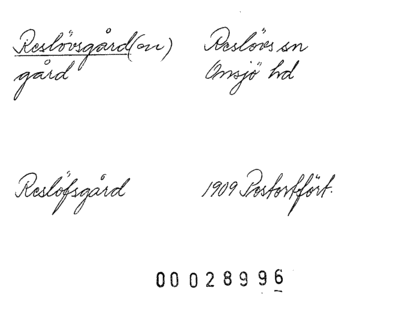 Reslövsgård(en) Reslövs sn
gård Onsjö hd
Reslöfsgård 1909 Postortfört.
00028996